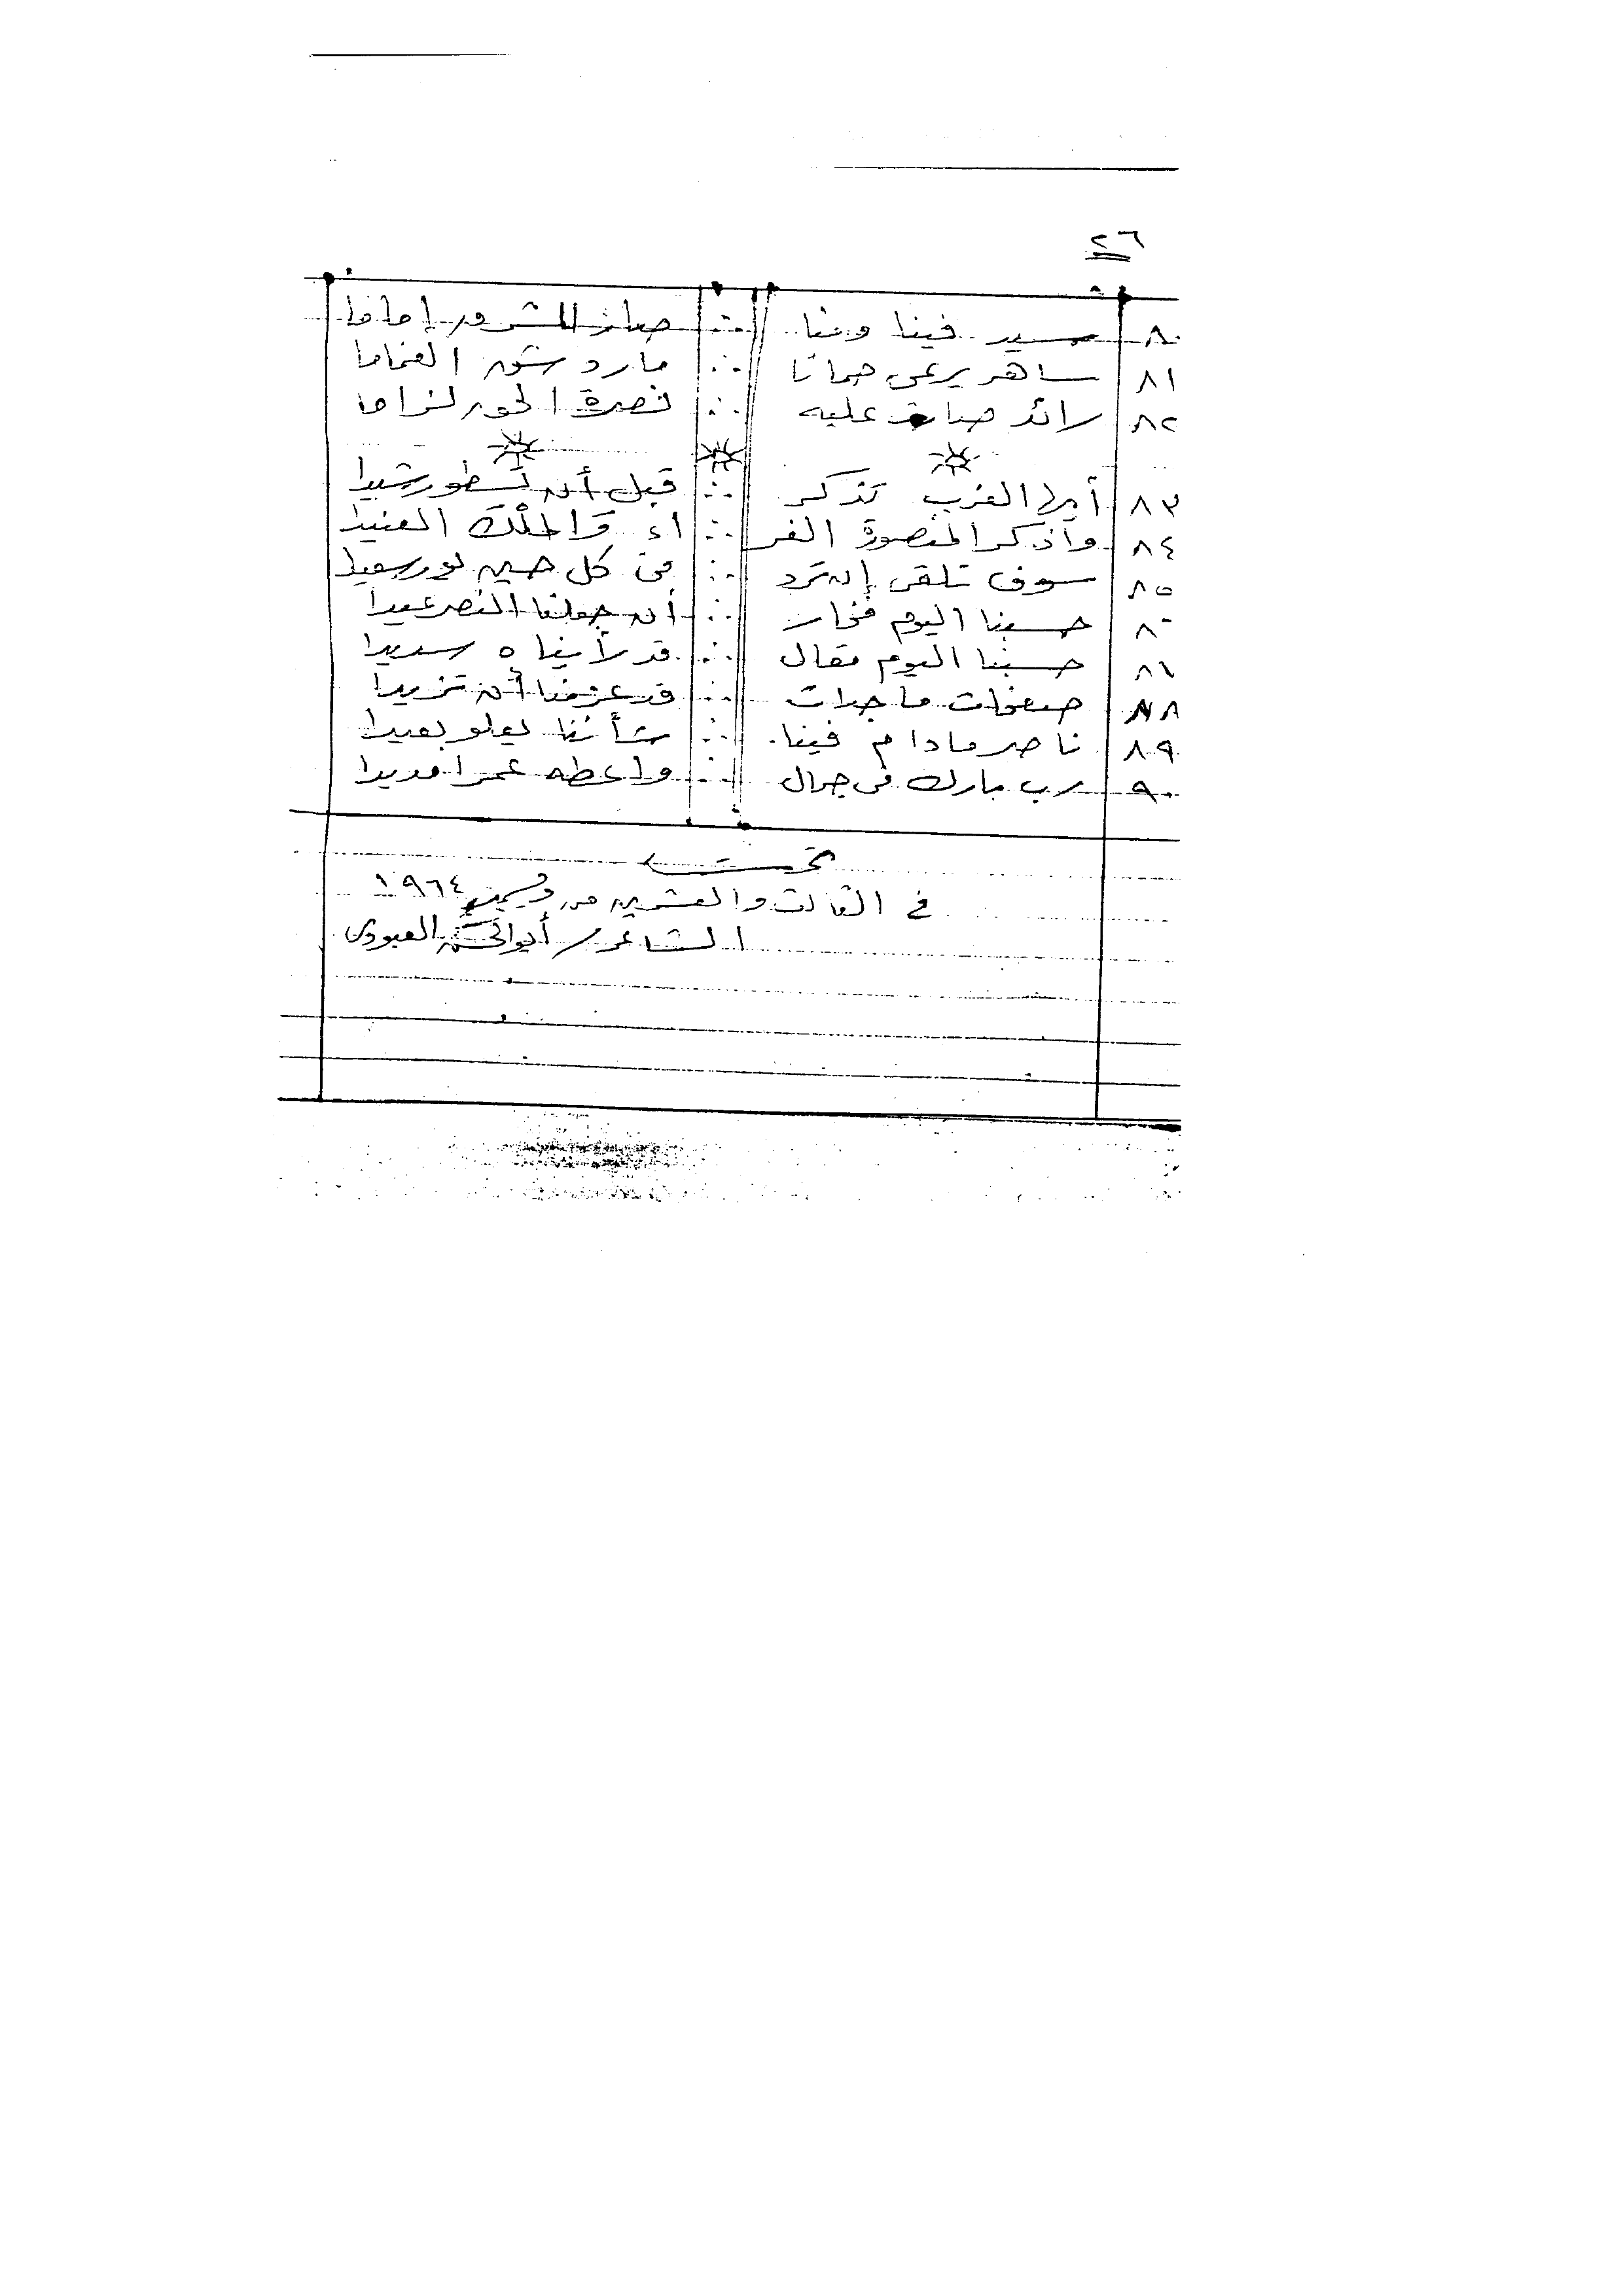 ٢٦
٨٠ سيد فينا ومنا ∴ صار للشرق إماما
٨١ ساهر يرعى حمانا ∴ مارد شق الغماما
٨٢ رائد صارت عليه ∴ نصرة الحق لزاما
٨٣ أيها الغرب تذكر ∴ قبل أن تسطو رشيدا
٨٤ واذكر المنصورة الغر ∴ اء الملك العنيدا
٨٥ سوف تلقى إن ترد ∴ في كل حين بورسعيدا
٨٦ حسبنا اليوم فخار ∴ أن جعلنا النصر عيدا
حسبنا اليوم مقال ∴ قد رأيناه سديدا
٨٨ صفحات ماجدات ∴ قد عزمنا أن تزيدا
٨٩ ناصر مادام فينا ∴ شأننا يعلو بعيدا
٩٠ رب بارك في جمال ∴ واعطه عمرا مديدا
تمت
في الثالث والعشرين من ديسمبر ١٩٦٤
الشاعر / العبودى